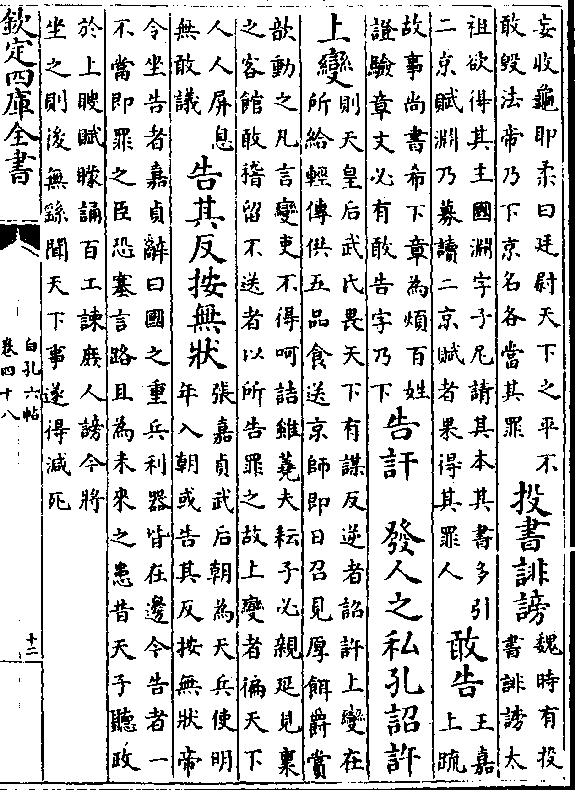 妄收龜耶柔曰廷尉天下之平不
敢毀法帝乃下京名各當其罪
投書誹謗
魏時有投
書誹謗太
祖欲得其主國淵字子尼請其本其書多引
二京賦淵乃募讀二京賦者果得其罪人
敢告
王嘉
上疏
故事尚書希下章為煩百姓
證驗章文必有敢告字乃下
告訐 發人之私孔詔許
上變
則天皇后武氏畏天下有謀反逆者詔許上變在
所給輕傳供五品食送京師即日召見厚餌爵賞
歆動之凡言變吏不得呵詰雖蕘夫耘子必親延見稟
之客館敢稽留不送者以所告罪之故上變者徧天下
人人屏息
無敢議
告其反按無狀
張嘉貞武后朝為天兵使明
年入朝或告其反按無狀帝
令坐告者嘉貞辭曰國之重兵利器皆在邊今告者一
不當即罪之臣恐塞言路且為未來之患昔天子聽政
於上瞍賦矇誦百工諫庶人謗今將
坐之則後無繇聞天下事遂得減死
欽定四庫全書
白孔六帖
卷四十八
十二